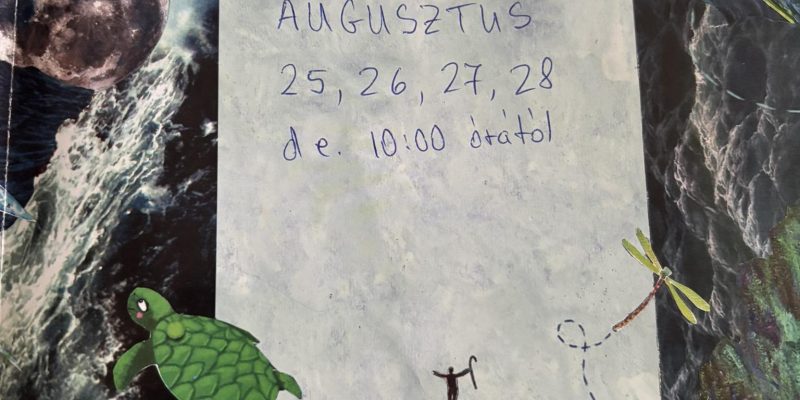 AUGUSZTUS
25, 26, 27, 28
de. 10:00 órától